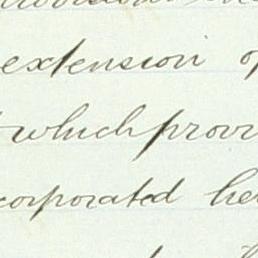 extension of
which provi
corporated he